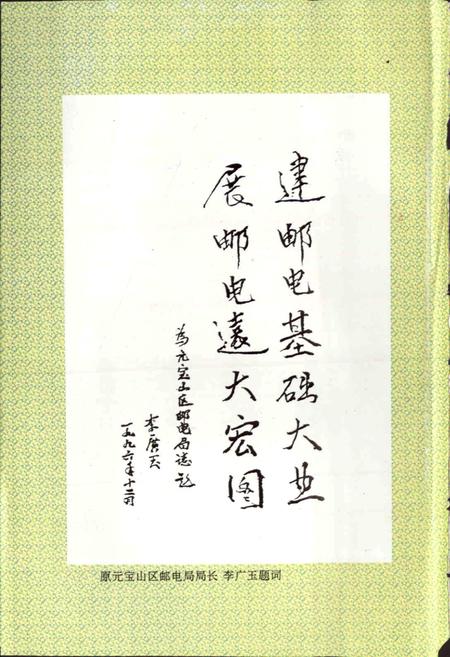 建邮电基础大业
展邮电遠大宏图
为元宝山区邮电局志题
李廣玉
一九九六年十二月
原元宝山区邮电局局长 李广玉题词